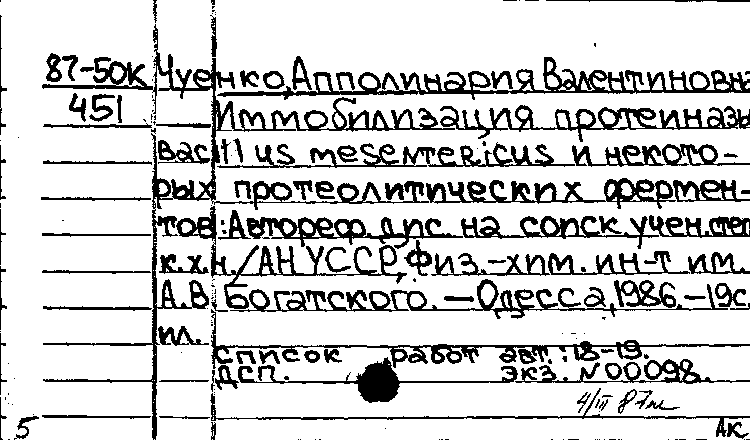 87-50К Чуенко, Апполинария Валентиновна
451 Иммобилизация протеиназы
Bacillus mesentericus и некото-
рых протеолитических фермен-
тов: Автореф. дис. на соиск. учен. степ
к.х.н. / АН УССР, Физ.-хим. ин-т им.
А.В. Богатского. — Одесса, 1986. – 19с.
ил.
Список работ авт.: 18-19.
ДСП. экз. N 00098.
4/III 87
5 АК